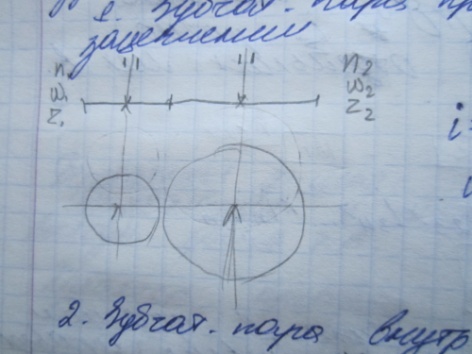 1. Зубчат. пара пр
зацеплении
n₁ n₂
ω₁ ω₂
z₁ z₂
i =
2. Зубчат. пара внутр